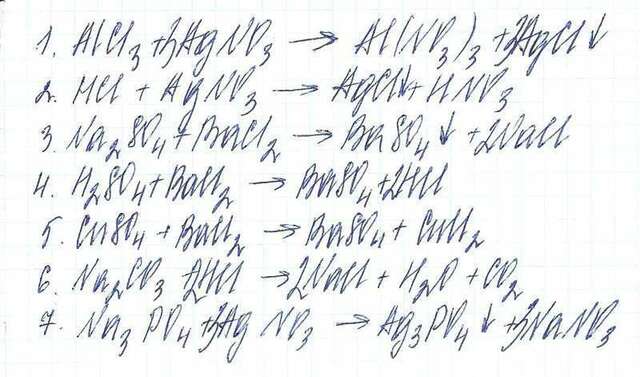 1. AlCl₃ + 3AgNO₃ → Al(NO₃)₃ + 3AgCl↓
2. HCl + AgNO₃ → AgCl↓ + HNO₃
3. Na₂SO₄ + BaCl₂ → BaSO₄↓ + 2NaCl
4. H₂SO₄ + BaCl₂ → BaSO₄ + 2HCl
5. CuSO₄ + BaCl₂ → BaSO₄ + CuCl₂
6. Na₂CO₃ + 2HCl → 2NaCl + H₂O + CO₂
7. Na₃PO₄ + 3AgNO₃ → Ag₃PO₄↓ + 3NaNO₃